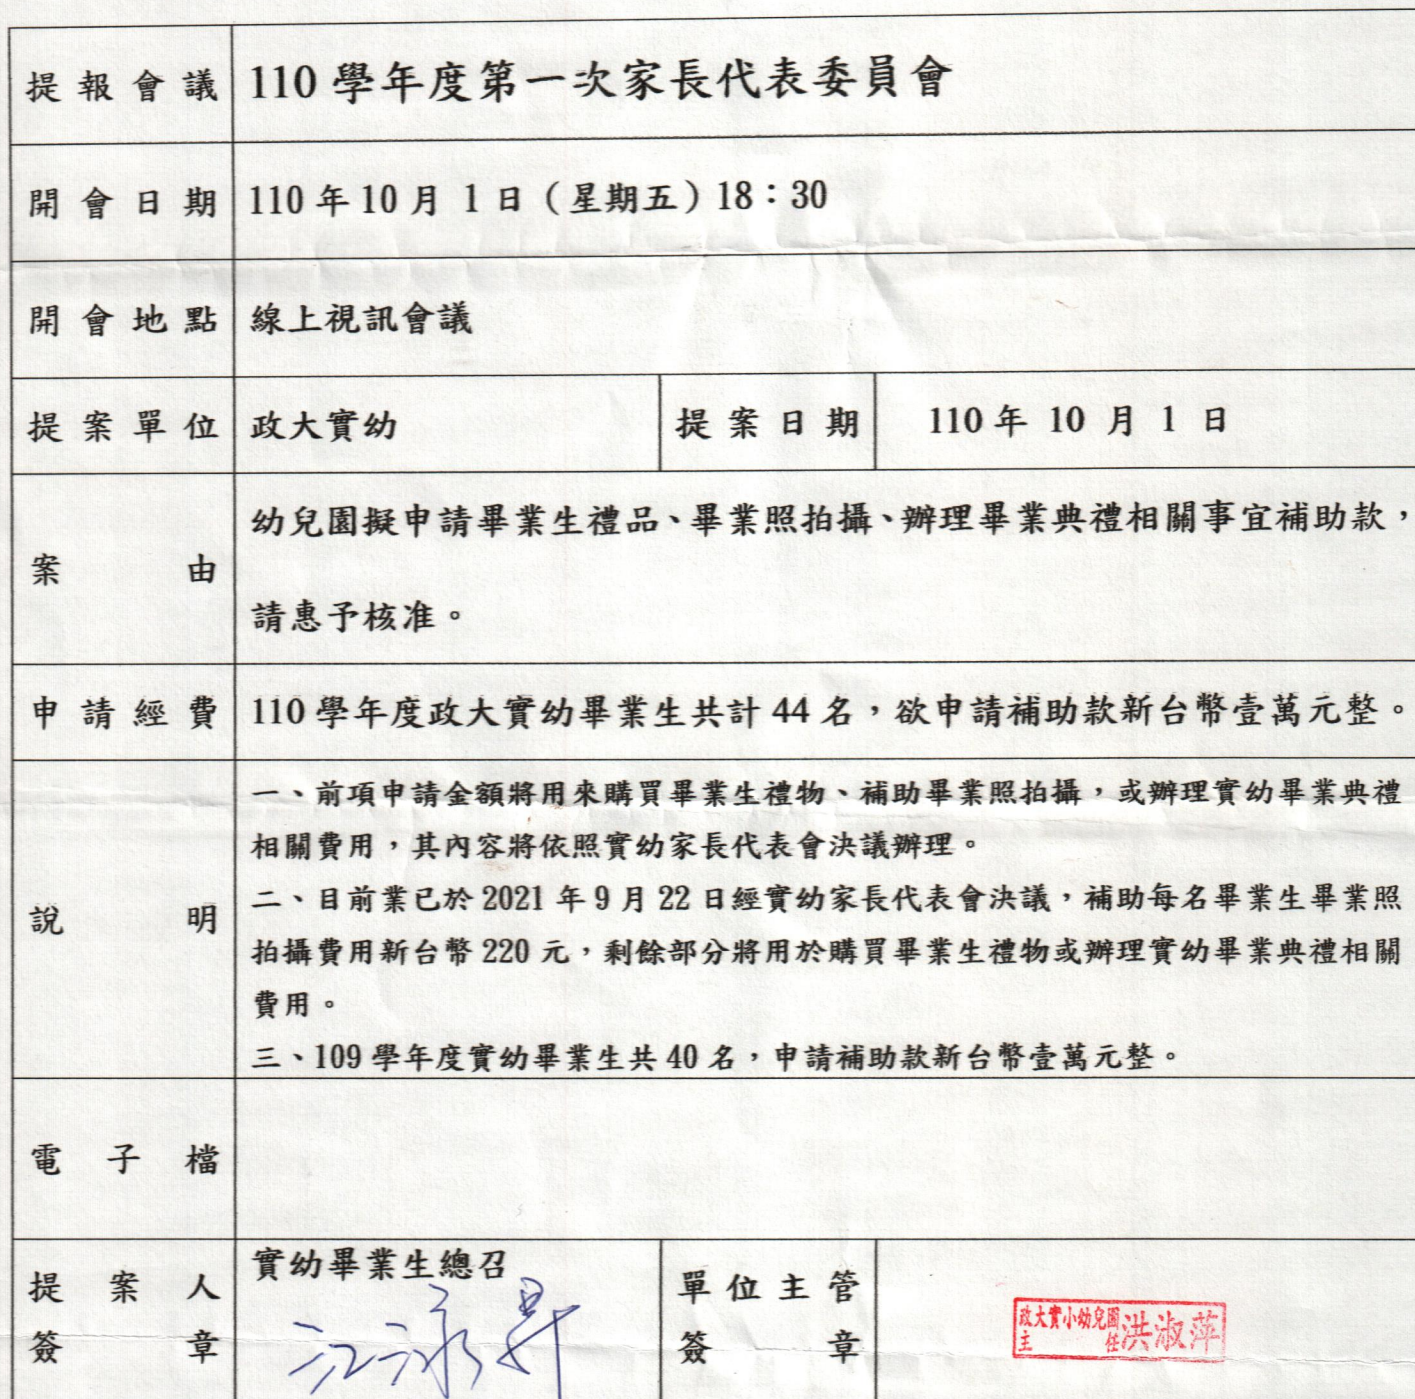 提報會議 110 學年度第一次家長代表委員會
開會日期 110 年 10 月 1 日（星期五）18：30
開會地點 線上視訊會議
提案單位 政大實幼 提案日期 110 年 10 月 1 日
案由 幼兒園擬申請畢業生禮品、畢業照拍攝、辦理畢業典禮相關事宜補助款，
請惠予核准。
申請經費 110 學年度政大實幼畢業生共計 44 名，欲申請補助款新台幣壹萬元整。
一、前項申請金額將用來購買畢業生禮物、補助畢業照拍攝，或辦理實幼畢業典禮
相關費用，其內容將依照實幼家長代表會決議辦理。
二、目前業已於 2021 年 9 月 22 日經實幼家長代表會決議，補助每名畢業生畢業照
說明 拍攝費用新台幣 220 元，剩餘部分將用於購買畢業生禮物或辦理實幼畢業典禮相關
費用。
三、109 學年度實幼畢業生共 40 名，申請補助款新台幣壹萬元整。
電子檔
提案人 實幼畢業生總召 單位主管
簽章 江永昇 簽章 政大實小幼兒園主任 洪淑萍